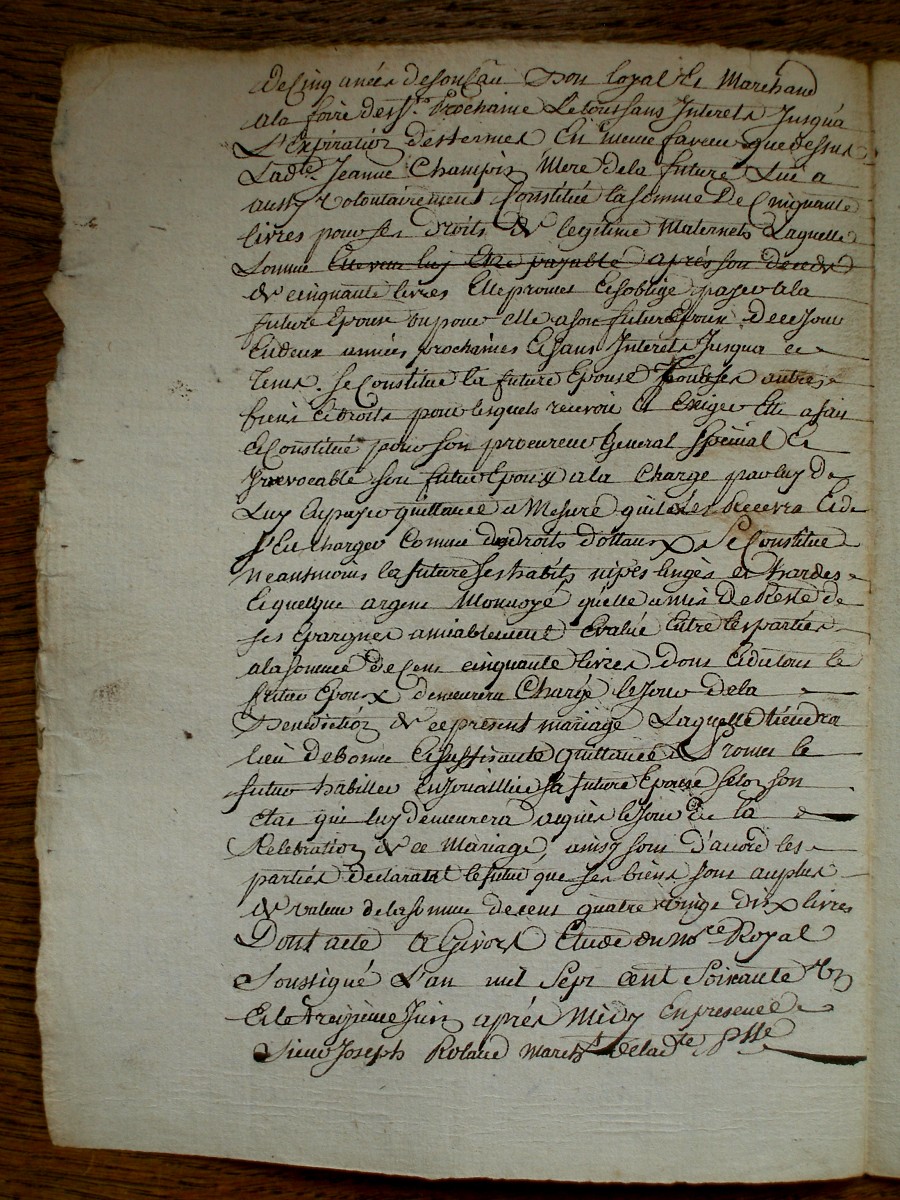 de Cinq années de son bau bon loyal Et Marchand
a la foire de st. prochaine Le tout sans Interets Jusqu'a
L'Expiration des termes En meme faveur que dessus
Ladte. Jeanne Champin Mere de la future Luia
aussy volontairement Constitué la somme De Cinquante
livres pour ses droits De legitime Maternels Laquelle
somme payable après son deceds
De cinquante livres Elle promet Et soblige payer a la
future Epouse ou pour elle a son futur Epoux de ce Jour
En deux années prochaines Et sans Interets Jusqua ce
tems. Se Constitue la future Epouse tous ses autres
biens Et droits pour lesquels recevoir Et Exiger Elle a fait
Et Constitué pour son procureur General Special Et
Irrevocable son futur Epoux a la Charge par luy de
Luy En payer quittance a Mesure quil les Recevra Et de
s'En charger Comme de droits dottaux Se Constitue
Neantmoins la future ses habits nipes linges et hardes
Et quelque argent Monnoyé quelle a mis De Reste de
ses Epargnes amiablement Evalué Entre les parties
a la somme De Cent cinquante livres dont Et du tout le
futur Epoux demeurera Chargé le Jour de la
Benediction De ce present mariage Laquelle tiendra
lieu de bonne Et suffisante quittance Promet le
futur habiller Enjoaillier sa future Epouse selon son
Etat qui luy demeurera acquis le Jour De la
Celebration De ce Mariage, ainsy sont d'acord les
parties declarant le futur que ses biens sont au plus
De valeur de la somme de cent quatre vingt dix livres
Dont acte a Givors Etude du nore Royal
Soussigné L'an mil Sept cent Soixante Un
Et le treizieme Juin après Midy En presence
Sieur Joseph Roland march.t de ladte psse